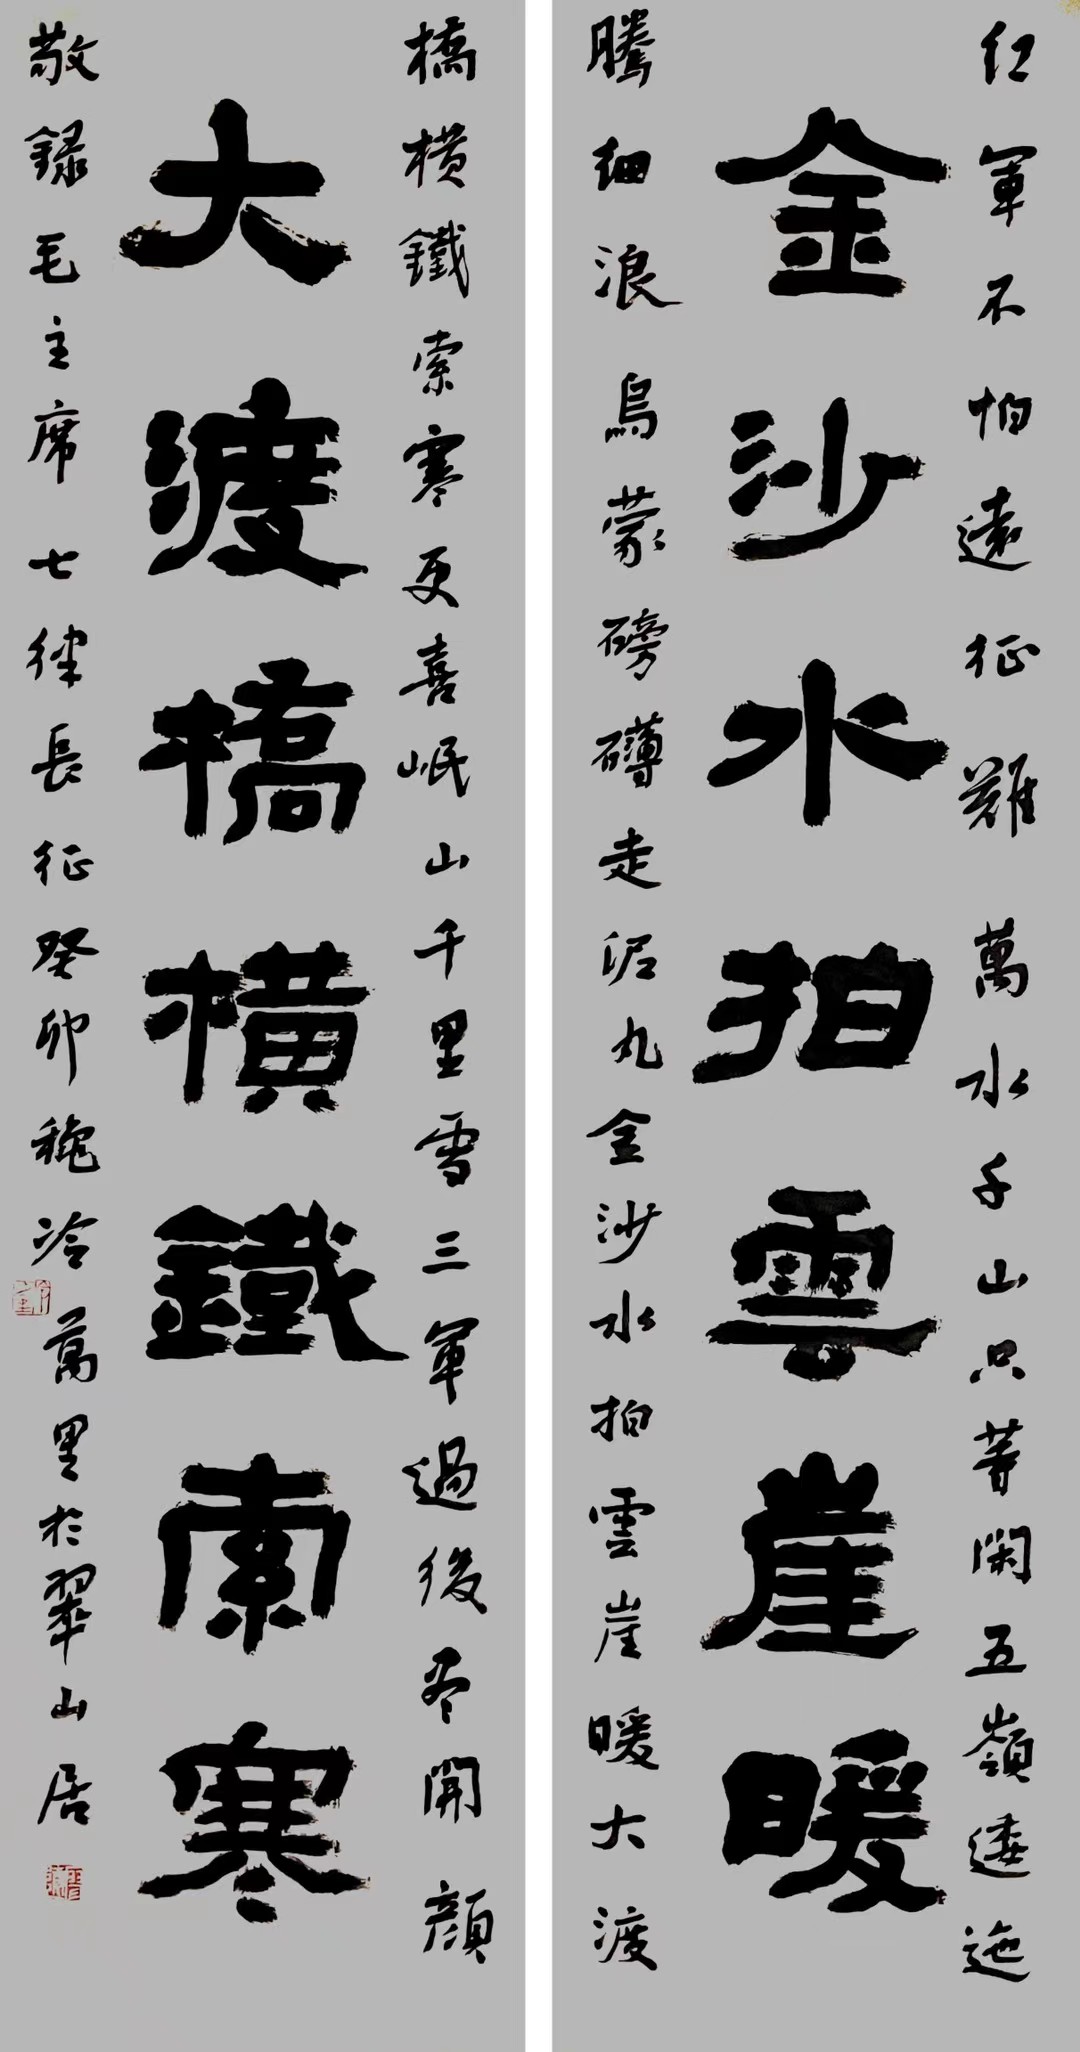 紅軍不怕遠征難萬水千山只等閑五嶺逶迤
金沙水拍雲崖暖
騰細浪烏蒙磅礴走泥丸金沙水拍雲崖暖大渡
橋横鐵索寒更喜岷山千里雪三軍過後尽開顔
大渡橋横鐵索寒
敬録毛主席七律長征癸卯穐冷萬里於翠山居